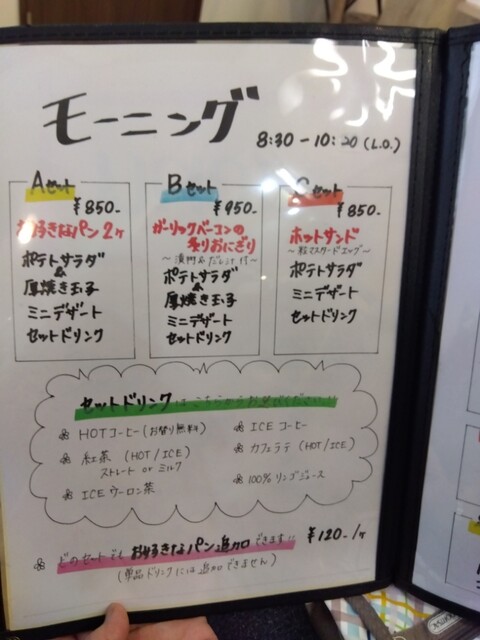 モーニング
8:30-10:20 (L.O.)
Aセット
¥850-
お好きなパン2ヶ
ポテトサラダ
&
厚焼き玉子
ミニデザート
セットドリンク
Bセット
¥950-
ガーリックベーコンの
炙りおにぎり
ポテトサラダ
&
厚焼き玉子
ミニデザート
セットドリンク
Cセット
¥850-
ホットサンド
〜粒マスタードエッグ〜
ポテトサラダ
ミニデザート
セットドリンク
セットドリンクはこちらからお選びください!!
HOTコーヒー(お替り無料)
紅茶 (HOT/ICE)
ストレート or ミルク
ICEウーロン茶
ICEコーヒー
カフェラテ (HOT/ICE)
100%リンゴジュース
どのセットでもお好きなパン追加できます ¥120-/ヶ
(単品ドリンクには追加できません)